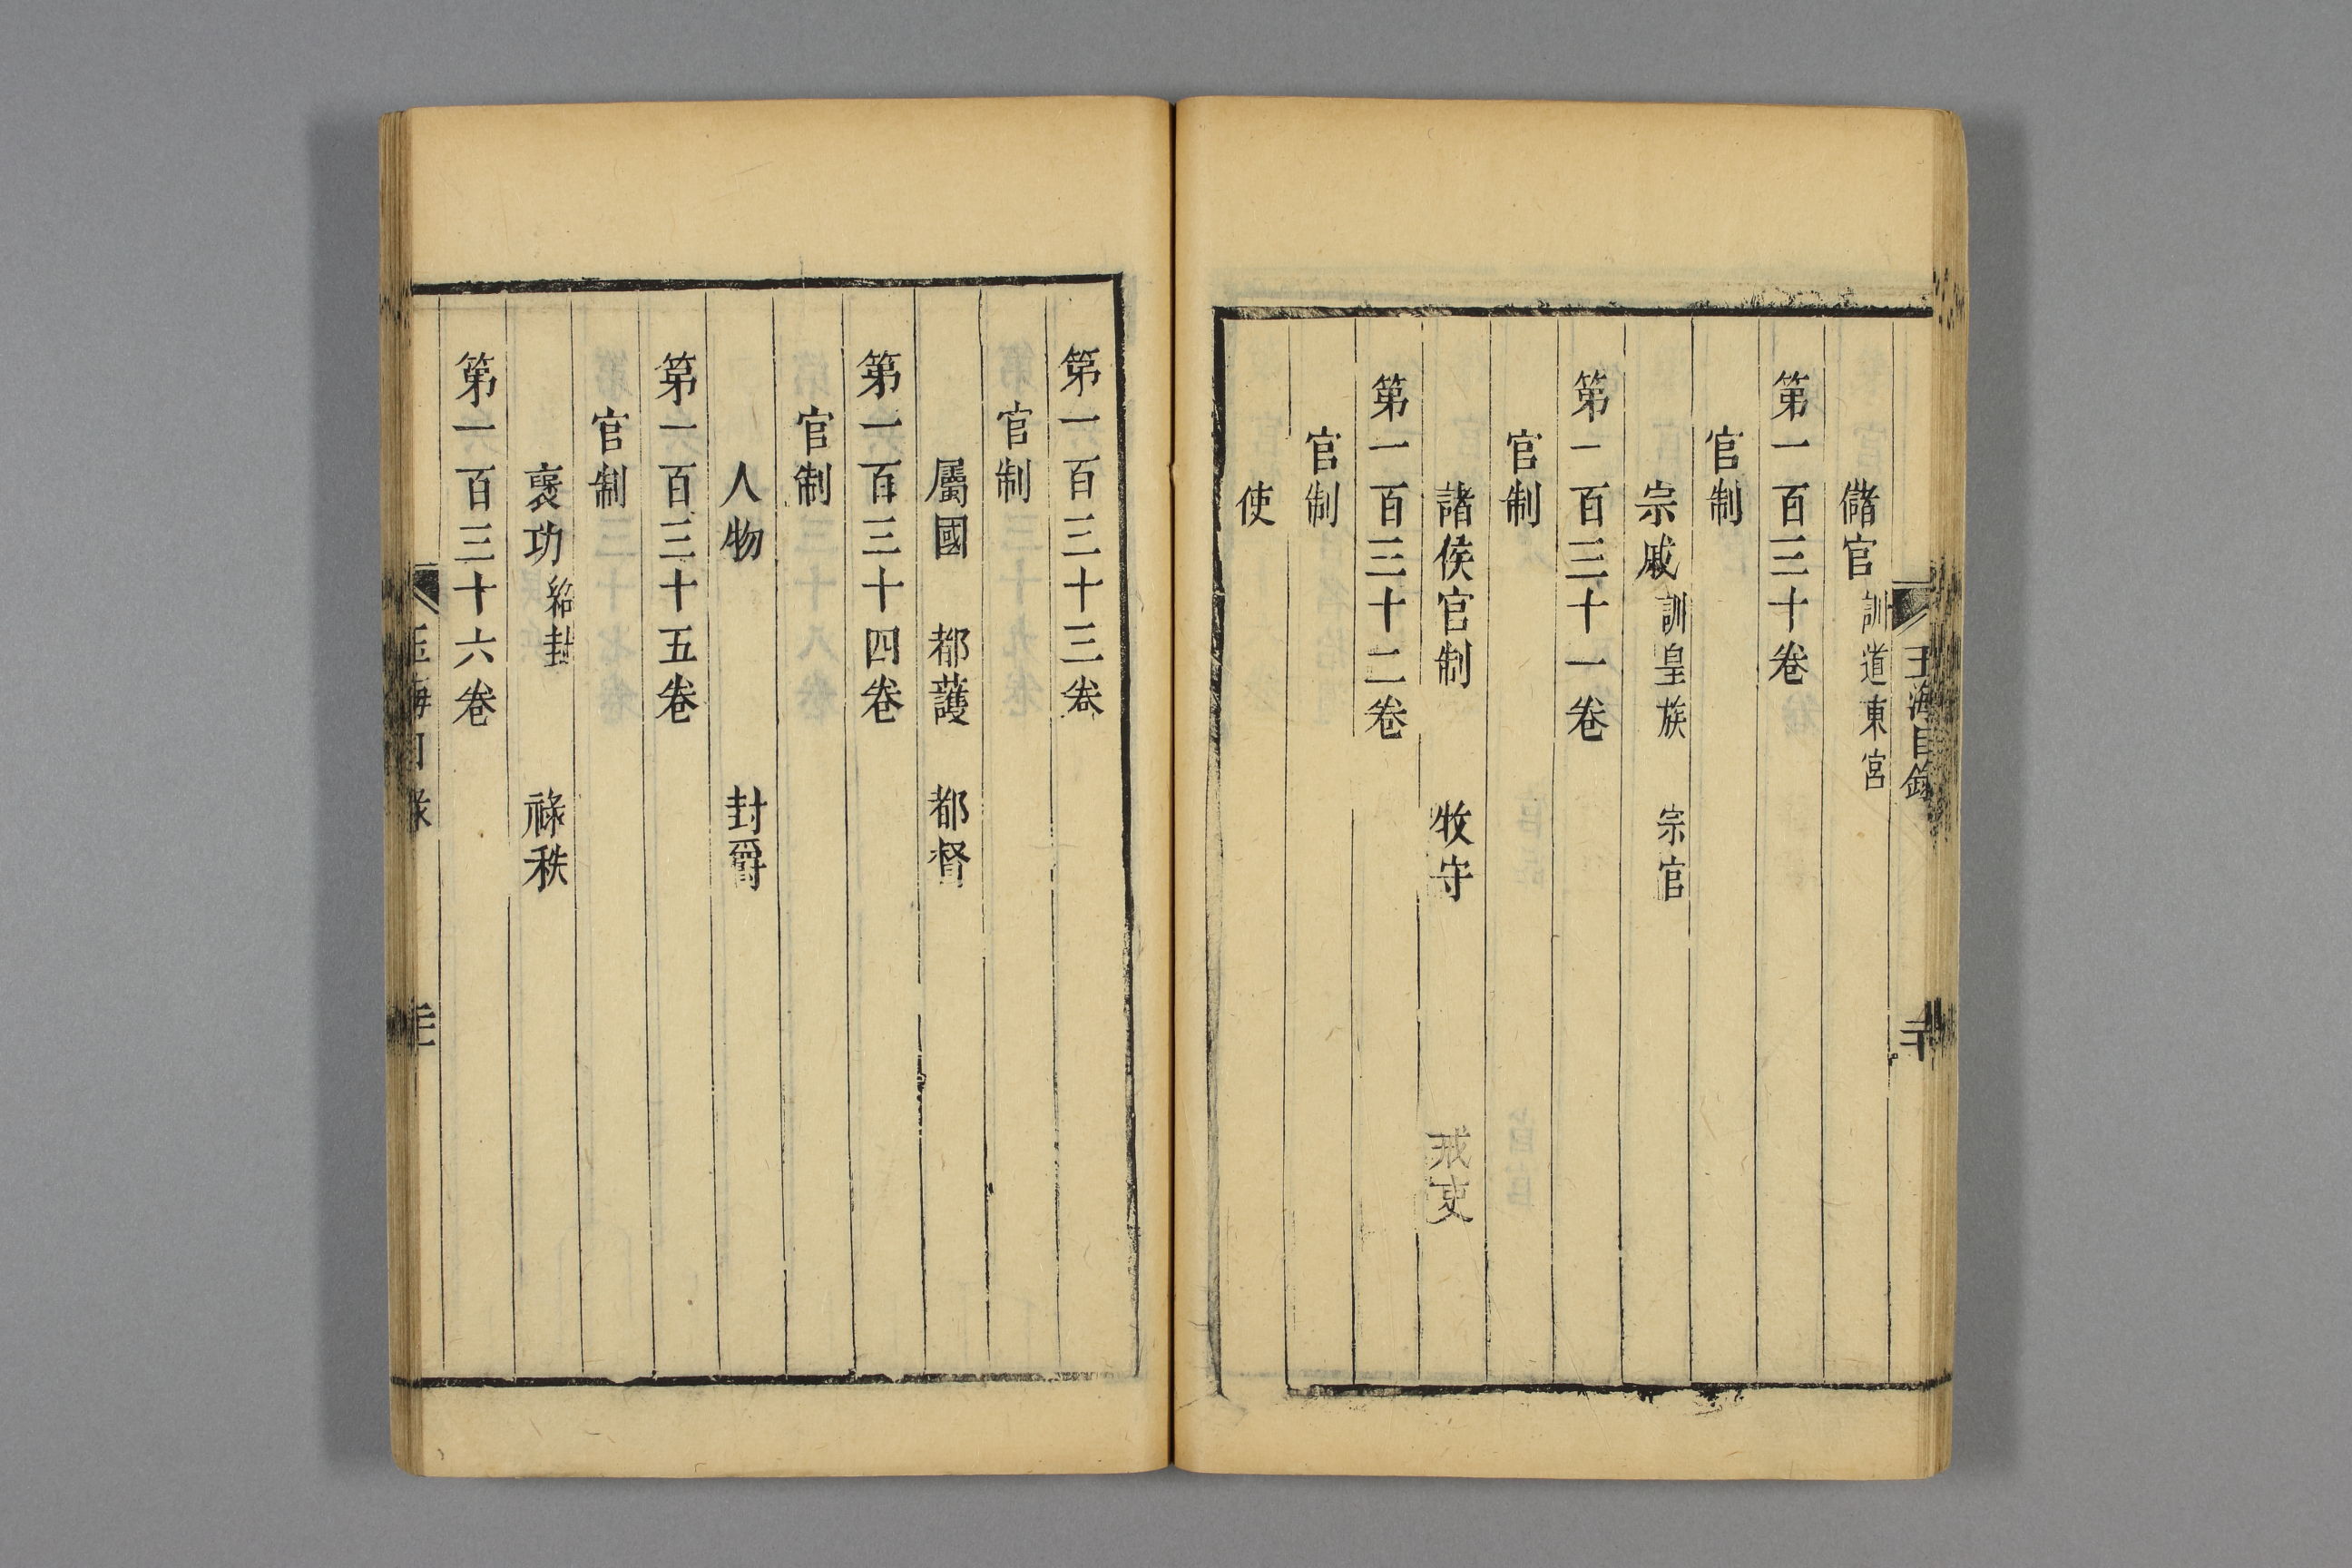 玉海目錄
二十
儲官 訓道東宮
第一百三十卷
官制
宗戚 訓皇族 宗官
第一百三十一卷
官制
諸侯官制 牧守 戒吏
第一百三十二卷
官制
使
第一百三十三卷
官制
屬國 都護 都督
第一百三十四卷
官制
人物 封爵
第一百三十五卷
官制
褒功 紹封 祿秩
第一百三十六卷